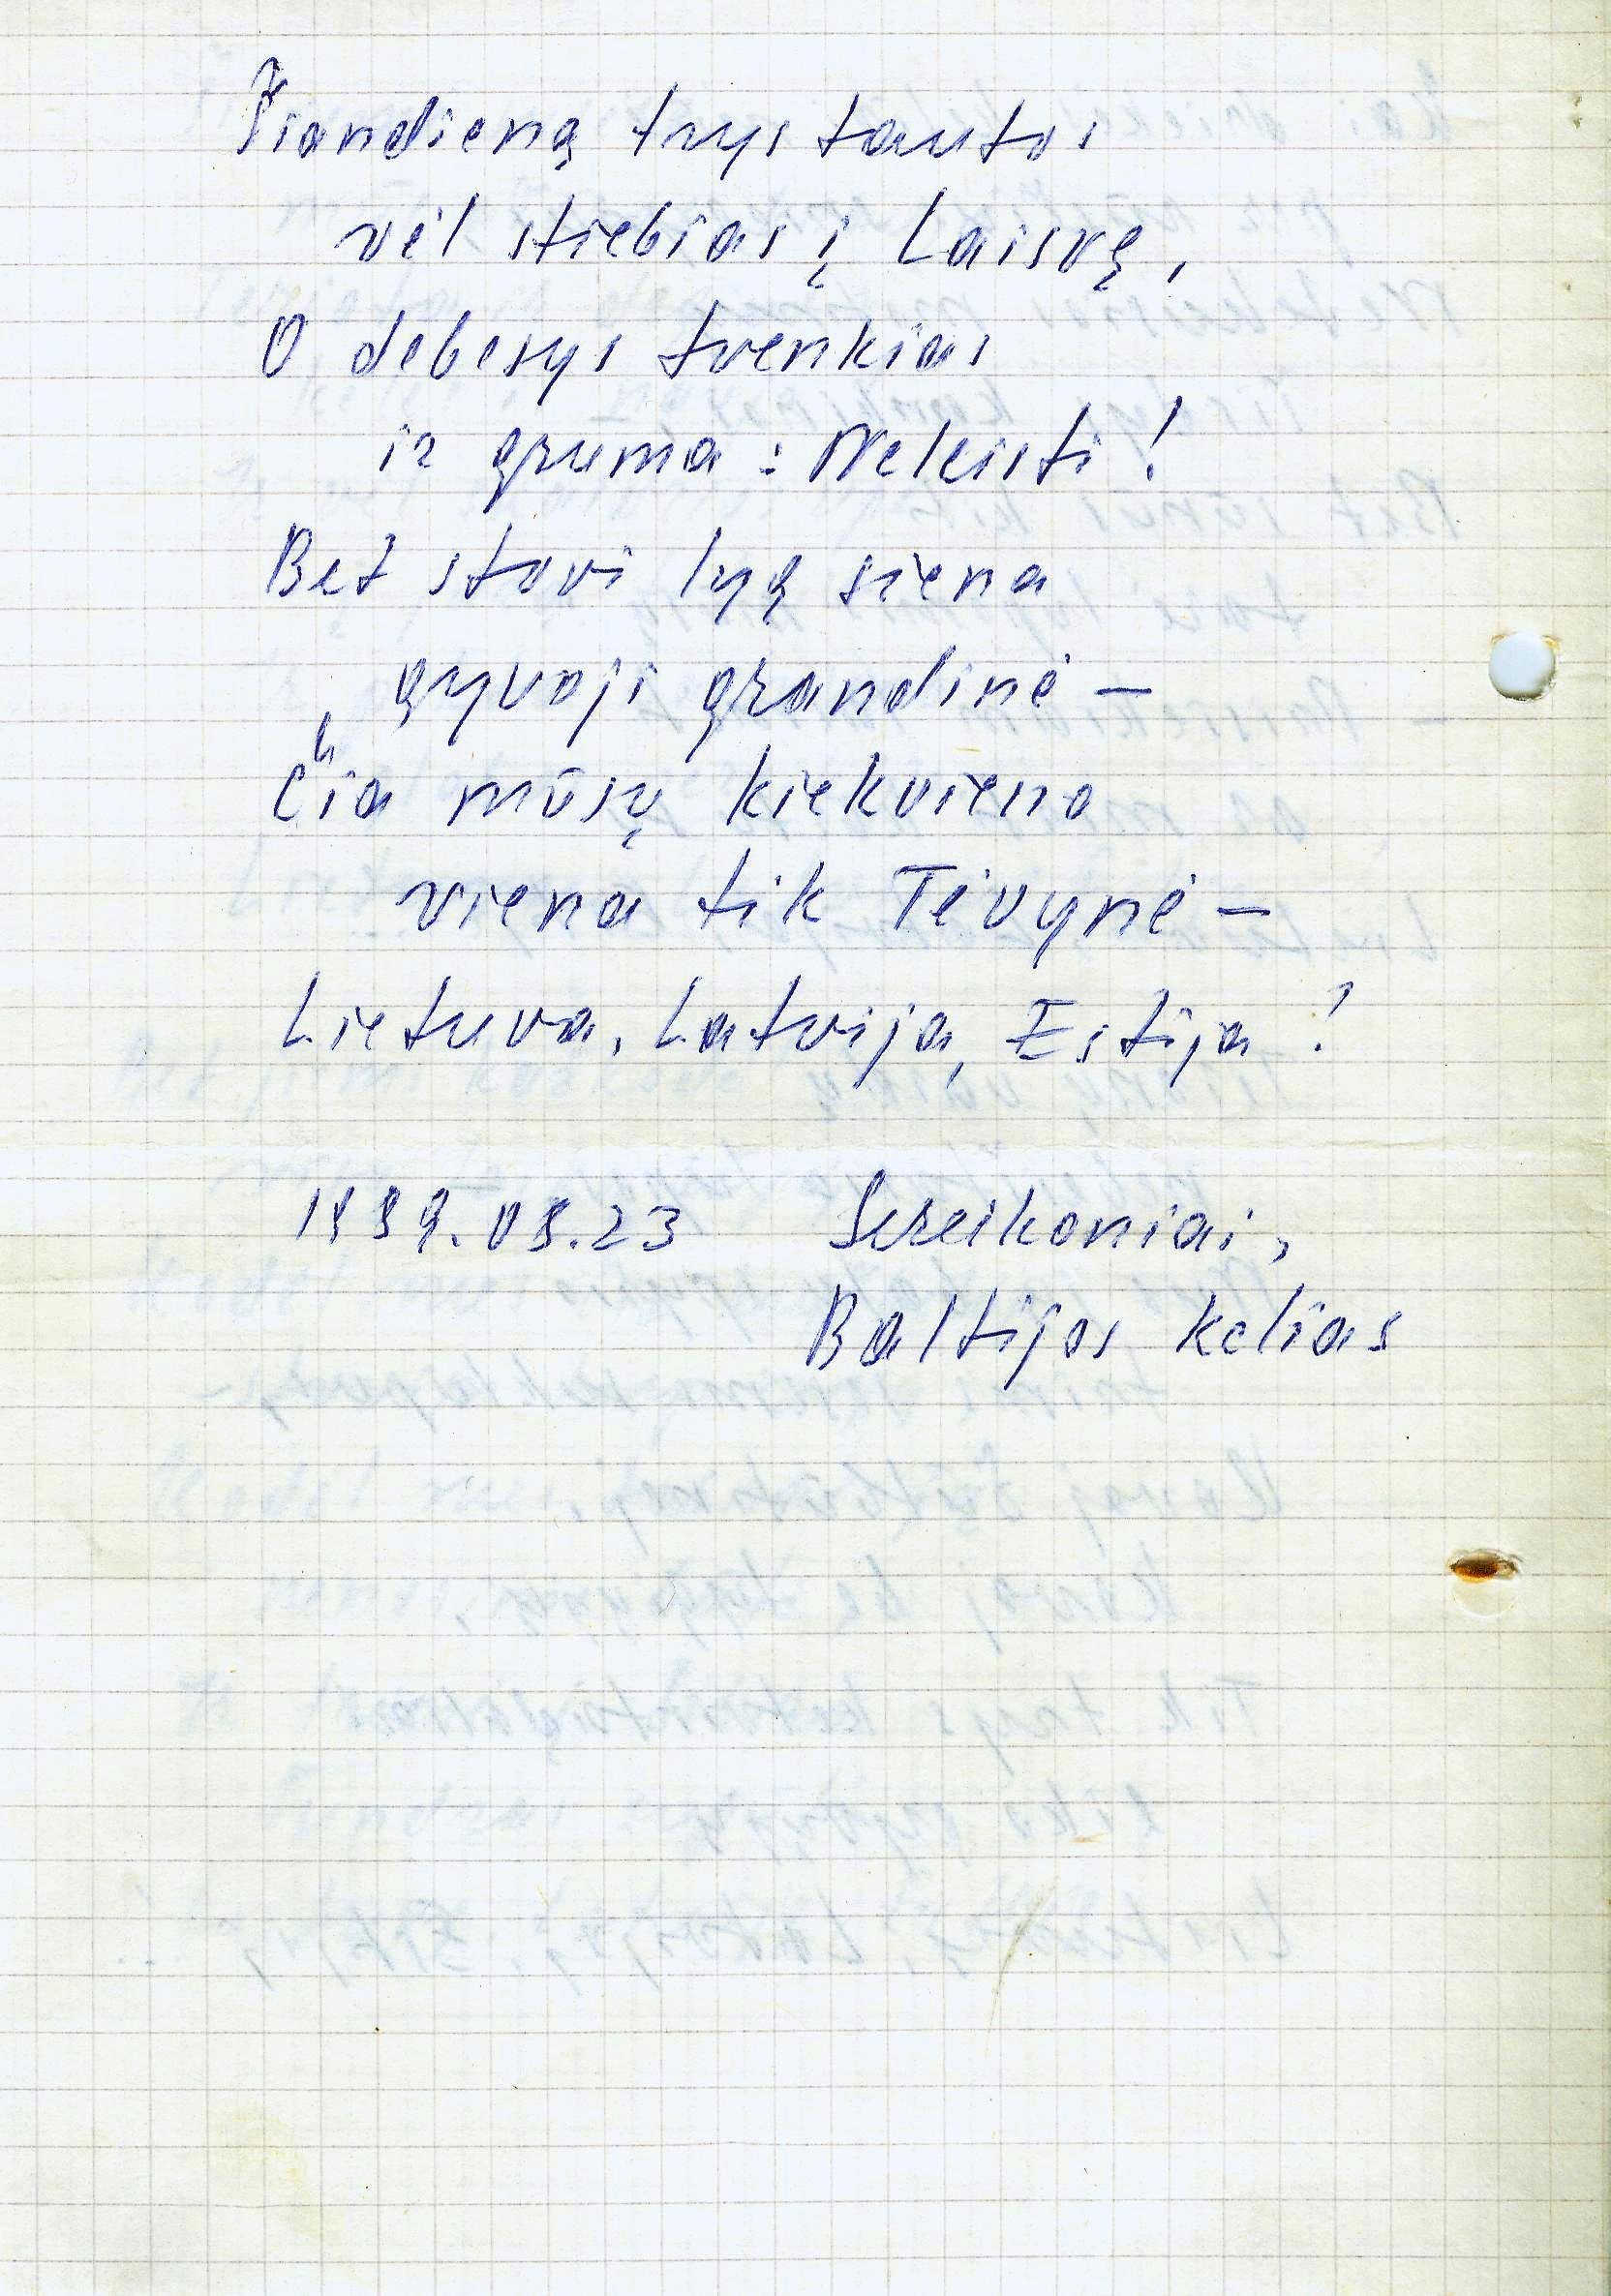 Šiandieną trys tautos
vėl stiebias į Laisvę,
O debesys tvenkias
ir gruma: Neleisti!
Bet stovi lyg siena
gyvoji grandinė –
Čia mūsų kiekvieno
viena tik Tėvynė –
Lietuva, Latvija, Estija!
1989.08.23 Sereikoniai,
Baltijos kelias